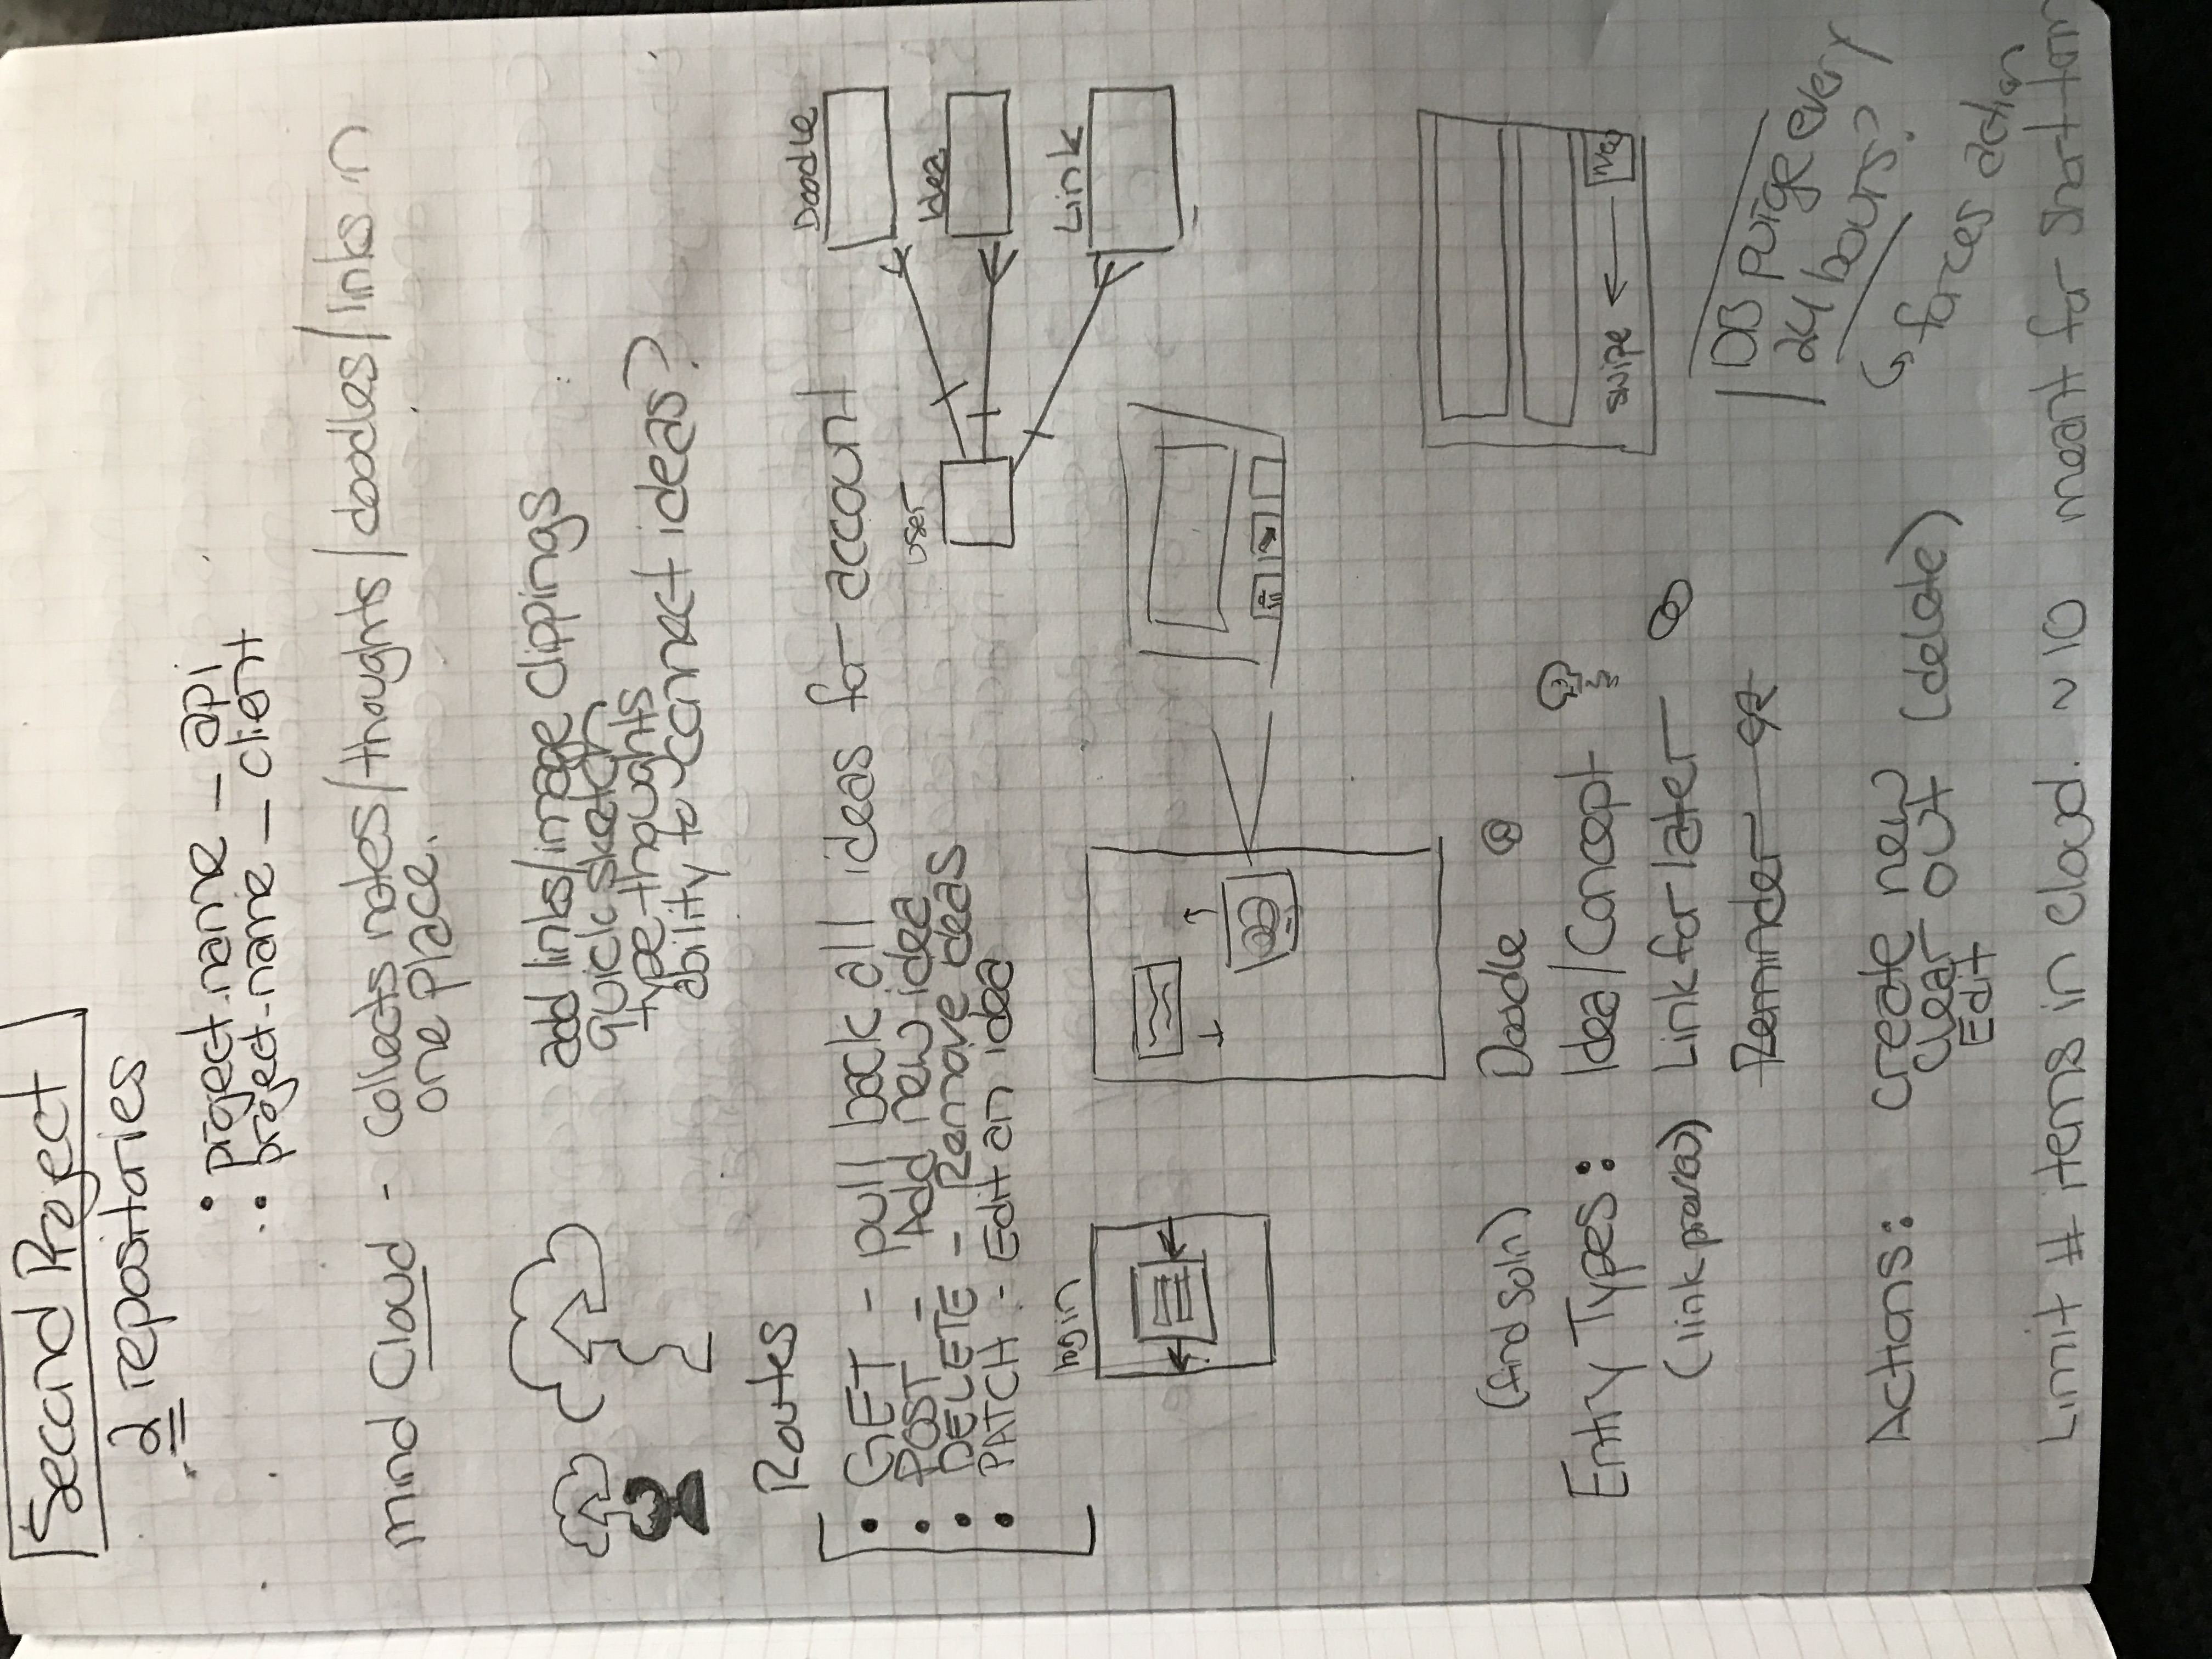 Second Project
2 repositories
• project-name _ api
• project-name _ client
mind Cloud - collects notes/thoughts/doodles/links in
one place.
add links/image clippings
quick sketch
type thoughts
ability to connect ideas?
Routes
• GET - pull back all ideas for account
• POST - Add new idea
• DELETE - Remove ideas
• PATCH - Edit an idea
User
Doodle
Idea
Link
login
(find soln) Doodle
Entry Types: Idea/Concept
(link preview) Link for later
Reminder
swipe ← new
DB purge every
24 hours?
↳ forces action
Actions: create new
clear out (delete)
Edit
Limit # items in cloud. ~ 10 meant for short term